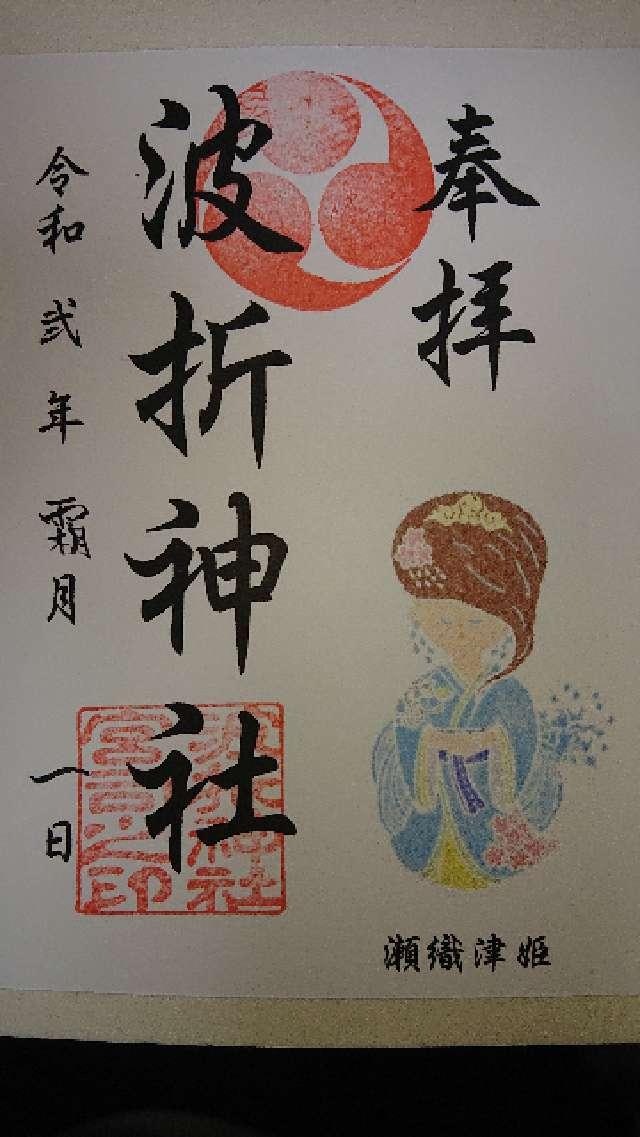 奉拝
瀬織津姫
波折神社
波折神社
宮司之印
令和弐年霜月一日